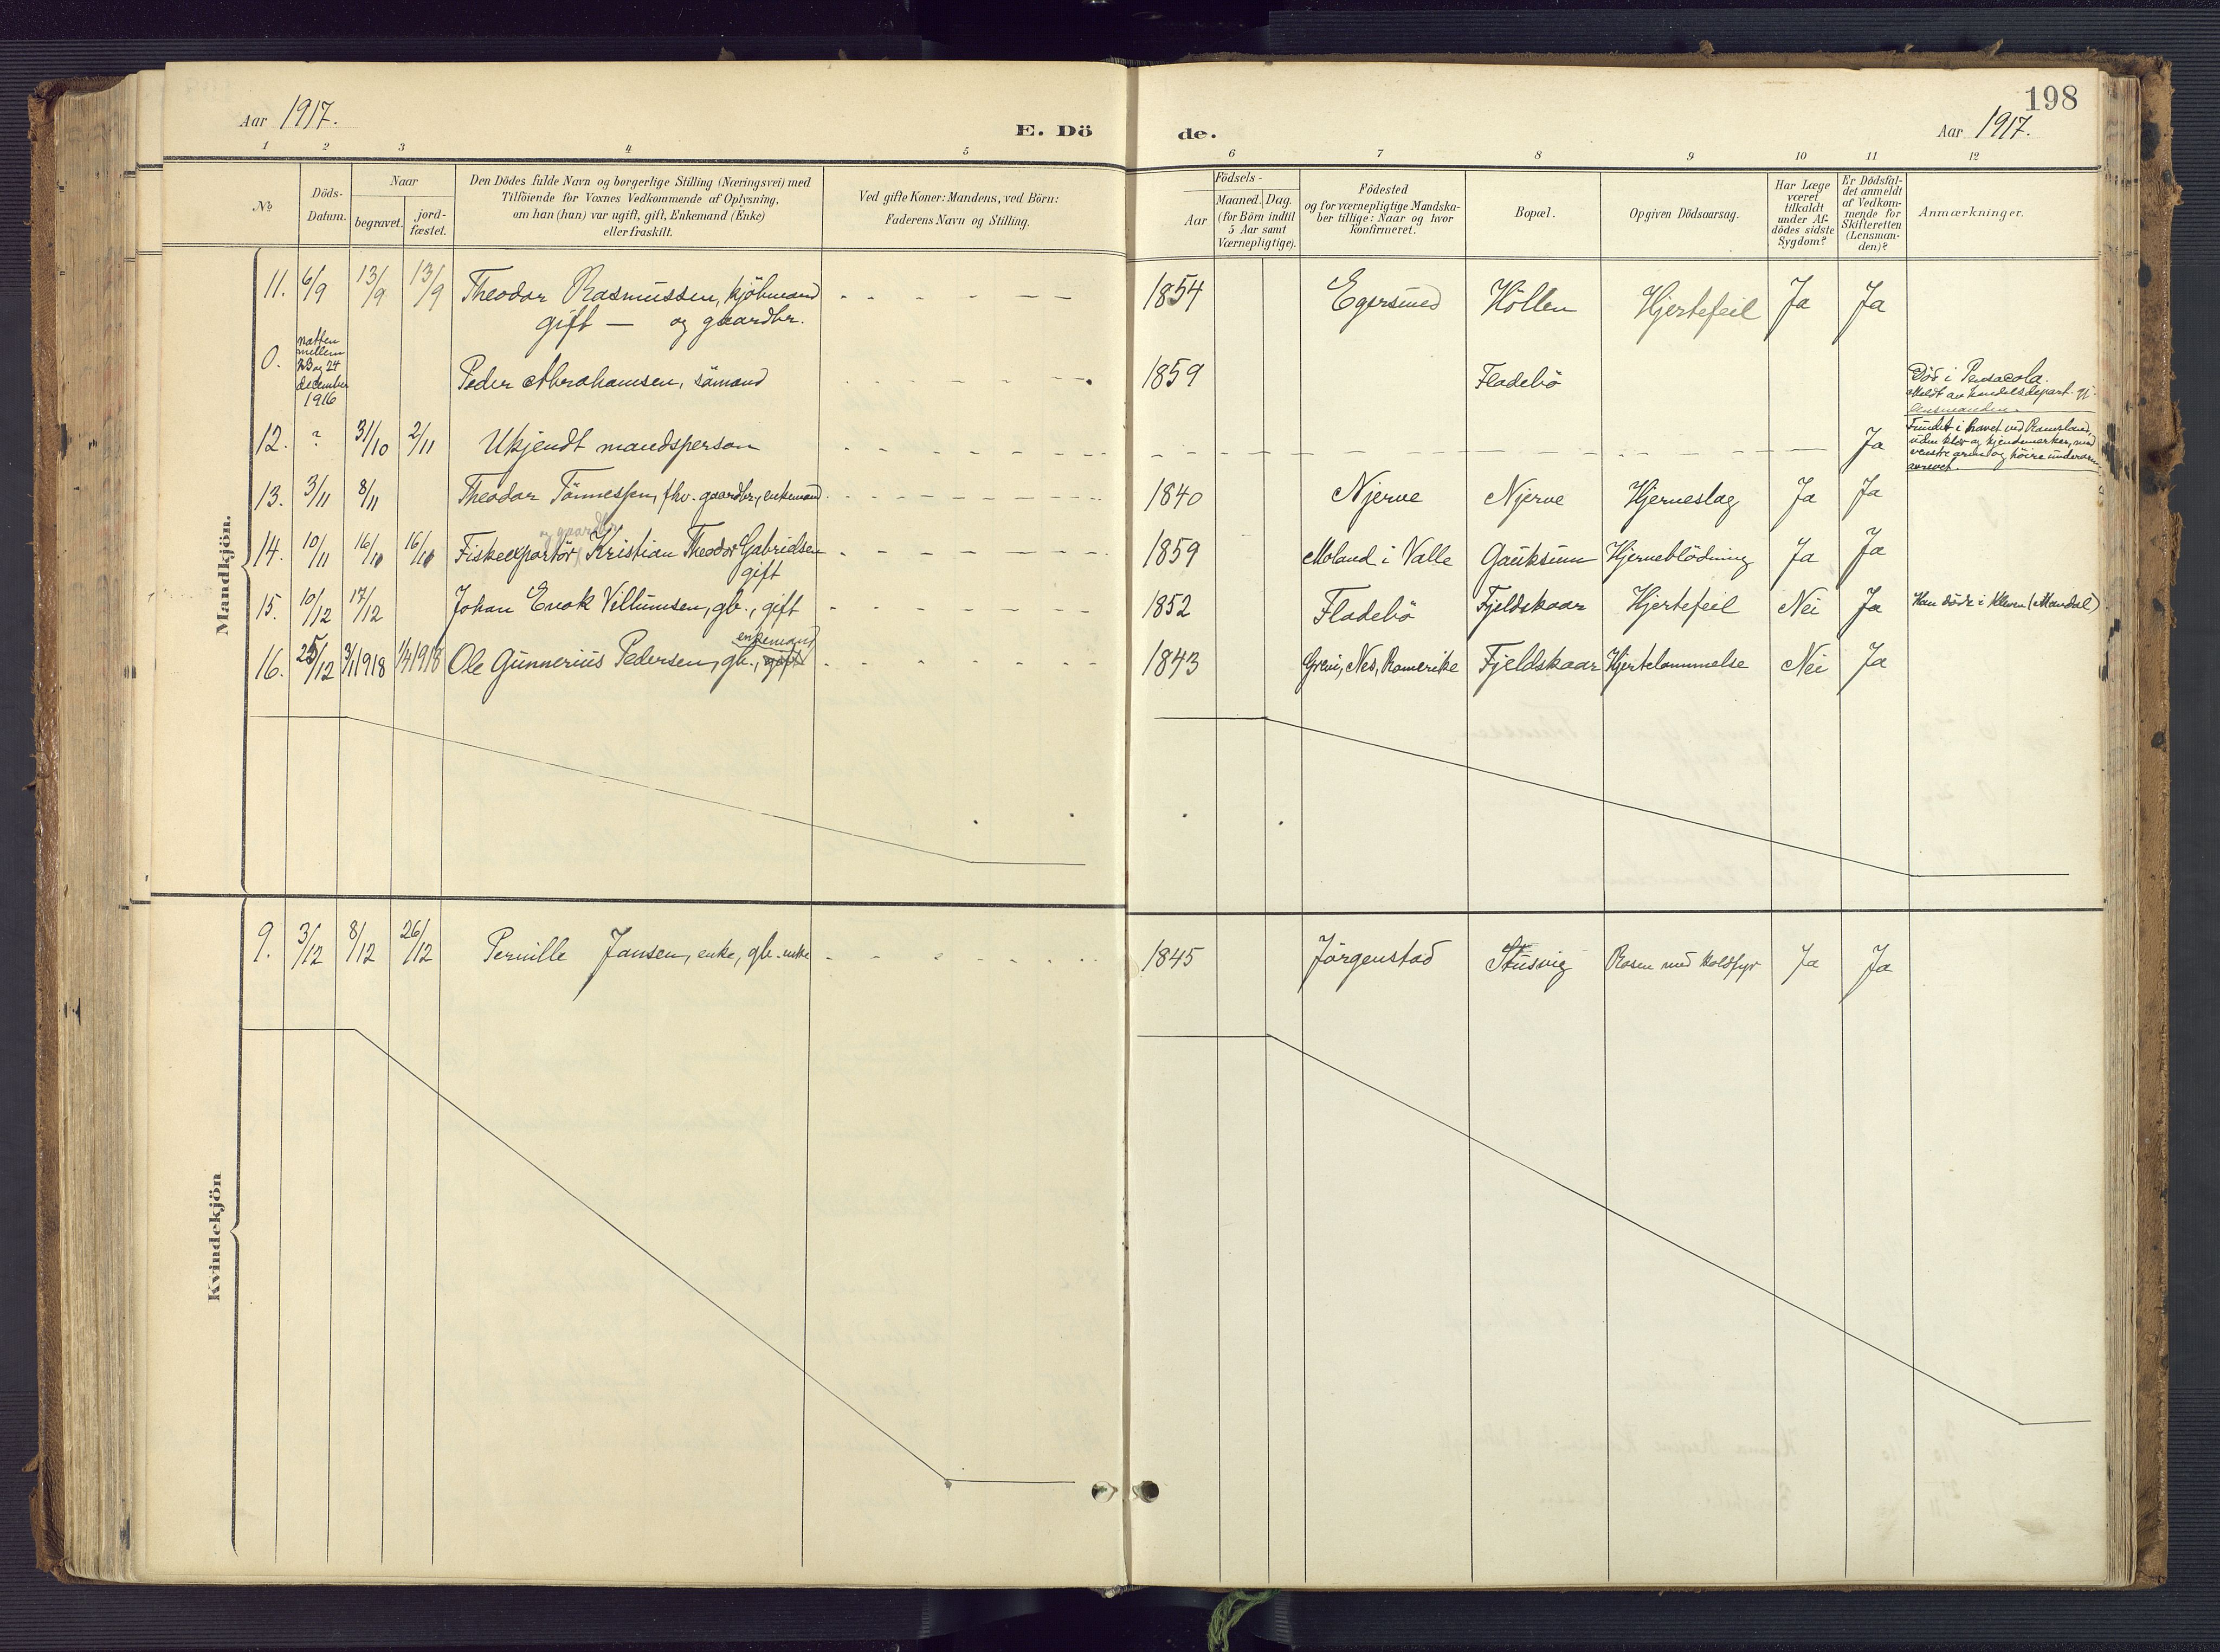 Aar 1917.
E. Dö
de.
198
Aar 1917.
1 2 3 4 5 6 7 8 9 10 11 12
No
Döds-
Datum.
Naar
begravet.
jord-
fæstet.
Den Dödes fulde Navn og borgerlige Stilling (Næringsvei) med
Tilföiende for Voxnes Vedkommende af Oplysning,
om han (hun) var ugift, gift, Enkemand (Enke)
eller fraskilt.
Ved gifte Koner: Mandens, ved Börn:
Faderens Navn og Stilling.
Födsels-
Aar
Maaned. Dag.
(for Börn indtil
5 Aar samt
Værnepligtige).
Födested
og for værnepligtige Mandska-
ber tillige: Naar og hvor
Konfirmeret.
Bopæl.
Opgiven Dödsaarsag.
Har Læge
været
tilkaldt
under Af-
dödes sidste
Sygdom?
Er Dödsfal-
det anmeldt
af Vedkom-
mende for
Skifteretten
(Lensman-
den)?
Anmærkninger.
Mandkjön.
11. 6/9 13/9 13/9 Theodor Rasmussen, kjöbmand 1854 Egersund Höllen Hjertefeil Ja Ja
gift — og gaardbr.
0. natten
mellem
23 og 24
december
1916
Peder Abrahamsen, sömand 1859 Fladebö
Död i Pensacola.
Meldt av handelsdepart. til
lensmanden.
12. ? 31/10 2/11 Ukjendt mandsperson Ja
Fundet i havet ved Ramsland,
uden klær og kjendemerker, med
venstre arm og höire underarm
avrevet.
13. 3/11 8/11 Theodor Tönnessen, fhv. gaardbr., enkemand 1840 Njerve Njerve Hjerneslag Ja Ja
og gaardbr.
14. 10/11 16/11 16/11 Fiskeexportör, Kristian Theodor Gabrielsen 1859 Moland i Valle Gauksum Hjerneblödning Ja Ja
gift
15. 10/12 17/12 Johan Enok Villumsen, gb., gift 1852 Fladebö Fjeldskaar Hjertefeil Nei Ja Han döde i Kleven (Mandal)
enkemand
16. 25/12 3/1 1918 1/4 1918 Ole Gunnerius Pedersen, gb., gift 1843 Grini, Nes, Romerike Fjeldskaar Hjertelammelse Nei Ja
Kvindekjön
9. 3/12 8/12 26/12 Pernille Jansen, enke, gb. enke 1845 Jörgenstad Stusvig Rosen med koldfyr Ja Ja